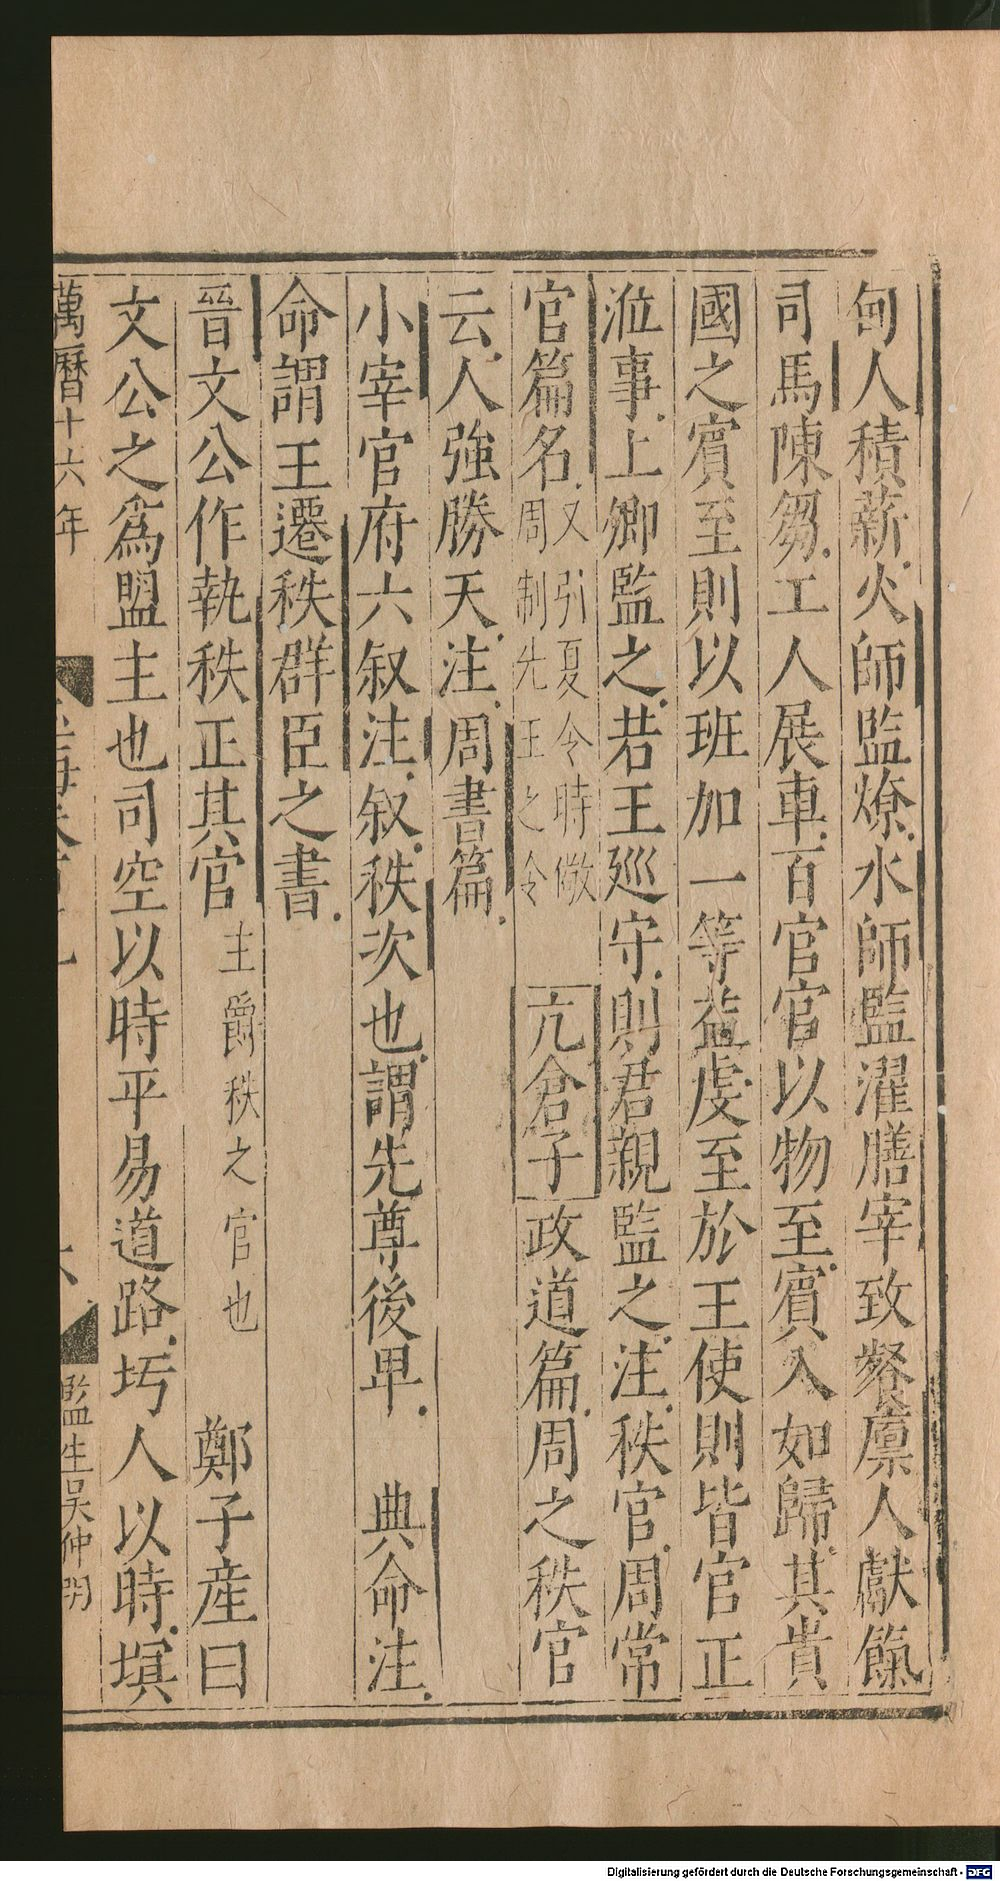 甸人積薪火師監燎水師監濯膳宰致餐廪人獻餼
司馬陳芻工人展車百官官以物至賓入如歸其貴
國之賓至則以班加一等益虔至於王使則皆官正
涖事上卿監之若王巡守則君親監之注秩官周常
官篇名又引夏令時儆周制先王之令 亢倉子政道篇周之秩官
云人強勝天注周書篇
小宰官府六叙注叙秩次也謂先尊後卑 典命注
命謂王遷秩群臣之書
晉文公作執秩正其官主爵秩之官也 鄭子產曰
文公之爲盟主也司空以時平易道路圬人以時塡
萬曆十六年
監生吴仲明
Digitalisierung gefördert durch die Deutsche Forschungsgemeinschaft - DFG